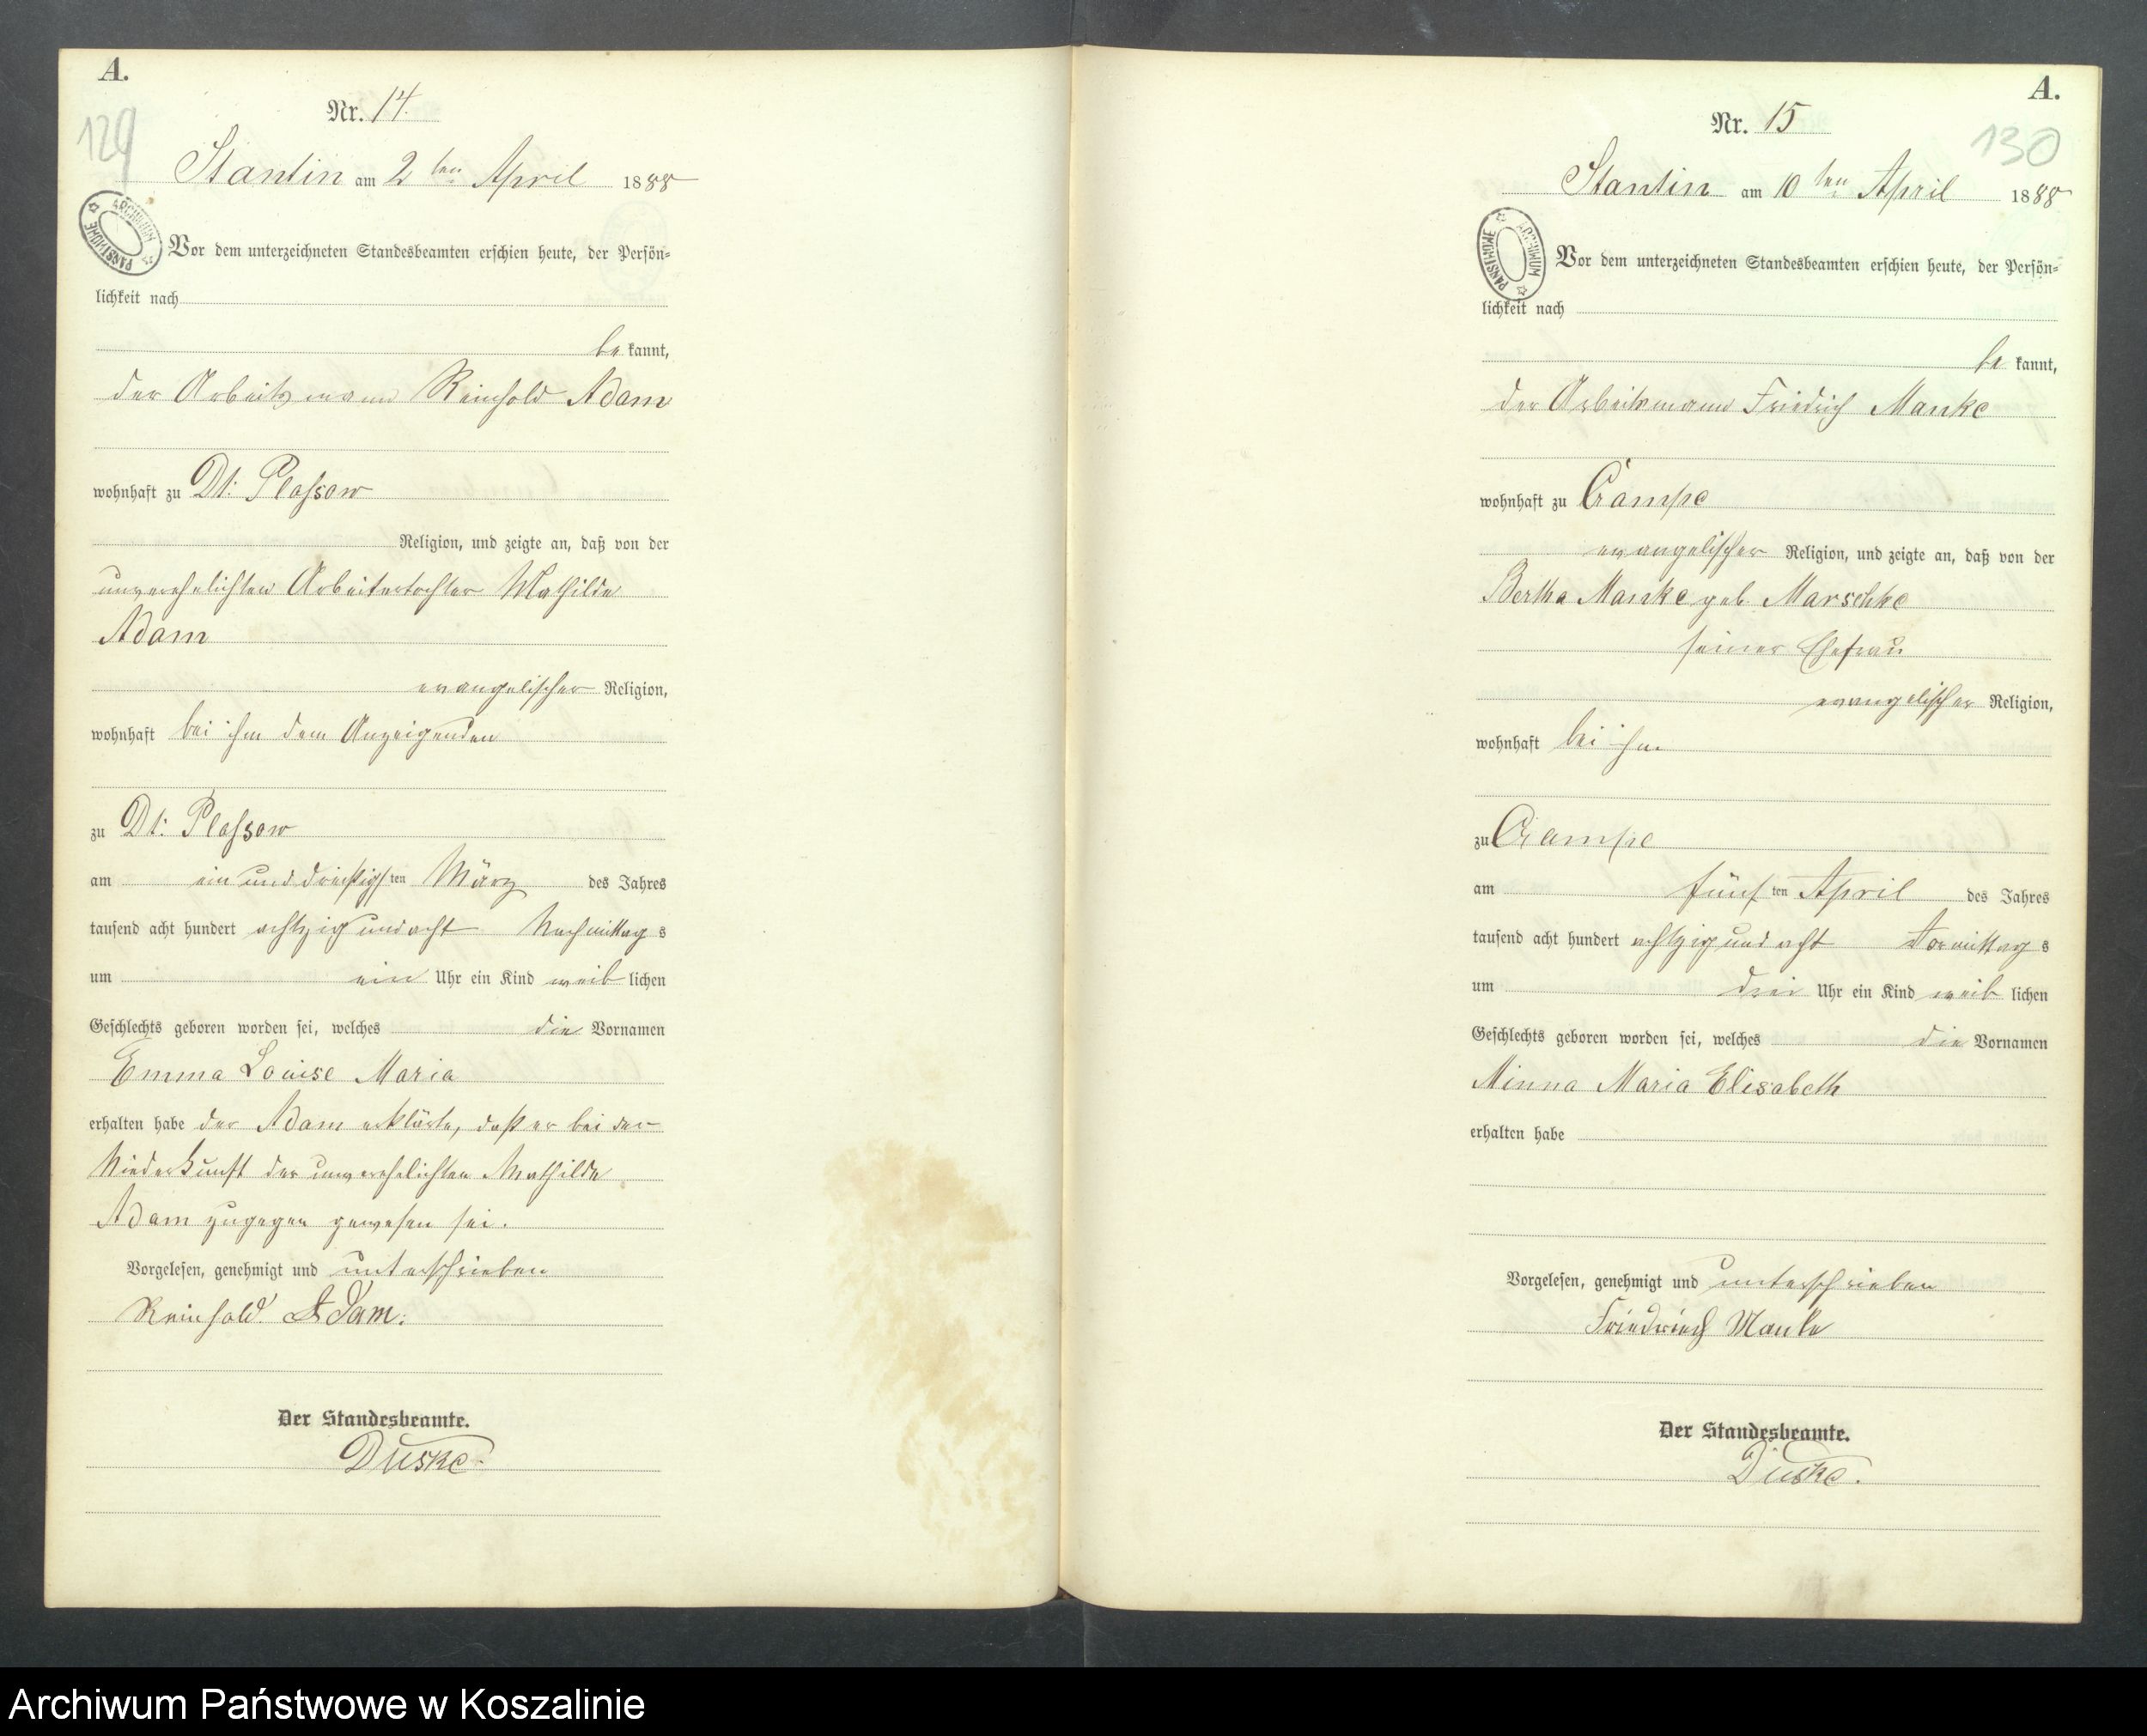 A.
129
Nr. 14.
Stantin am 2ten April 1888
ARCHIWUM PAŃSTWOWE
Vor dem unterzeichneten Standesbeamten erschien heute, der Persön=
lichkeit nach
be kannt,
der Arbeitsmann Reinhold Adam
wohnhaft zu Dt: Plassow
Religion, und zeigte an, daß von der
unverehelichten Arbeitertochter Mathilde
Adam
evangelischer Religion,
wohnhaft bei ihm dem Anzeigenden
zu Dt: Plassow
am ein und dreißigsten März des Jahres
tausend acht hundert achtzig und acht Nachmittags
um ein Uhr ein Kind weiblichen
Geschlechts geboren worden sei, welches die Vornamen
Emma Louise Maria
erhalten habe der Adam erklärte, daß er bei der
Niederkunft der unverehelichten Mathilde
Adam zugegen gewesen sei.
Vorgelesen, genehmigt und unterschrieben
Reinhold Adam.
Der Standesbeamte.
Duske.
A.
130
Nr. 15
Stantin am 10ten April 1888
ARCHIWUM PAŃSTWOWE
Vor dem unterzeichneten Standesbeamten erschien heute, der Persön=
lichkeit nach
be kannt,
der Arbeitsmann Friedrich Manke
wohnhaft zu Crampe
evangelischer Religion, und zeigte an, daß von der
Bertha Manke geb Marschke
seiner Ehefrau
evangelischer Religion,
wohnhaft bei ihm
zu Crampe
am fünften April des Jahres
tausend acht hundert achtzig und acht Vormittags
um drei Uhr ein Kind weiblichen
Geschlechts geboren worden sei, welches die Vornamen
Minna Maria Elisabeth
erhalten habe
Vorgelesen, genehmigt und unterschrieben
Friedriech Manke
Der Standesbeamte.
Duske.
Archiwum Państwowe w Koszalinie